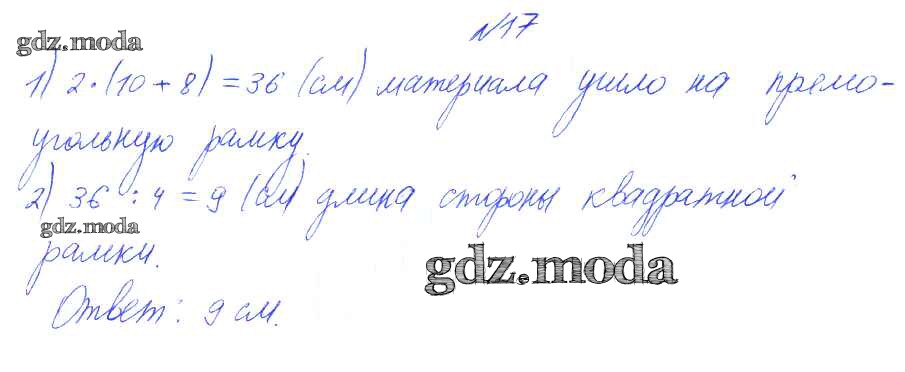 №17
gdz.moda
1) 2·(10+8)=36 (см) материала ушло на прямо-
угольную рамку.
2) 36 : 4 = 9 (см) длина стороны квадратной
gdz.moda
рамки.
gdz.moda
Ответ: 9 см.